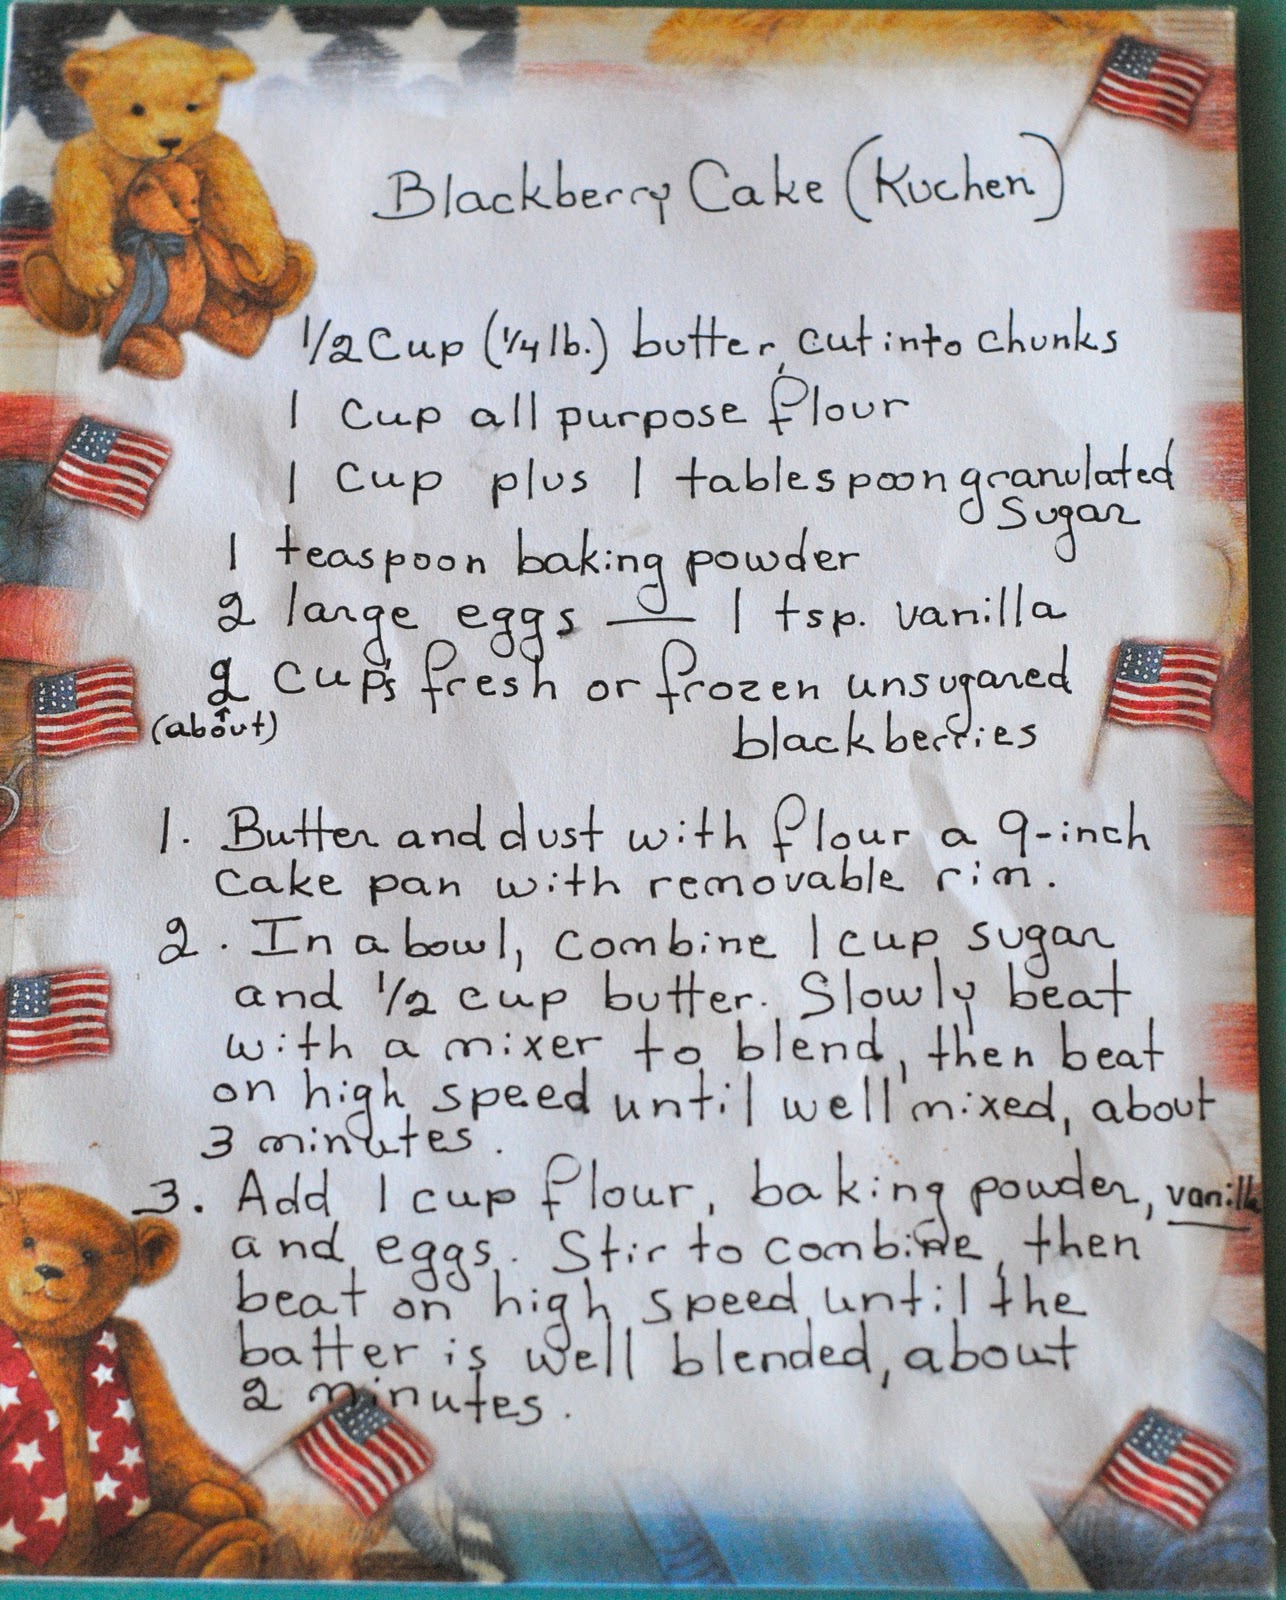 Blackberry Cake (Kuchen)
1/2 Cup (1/4 lb.) butter, cut into chunks
1 cup all purpose flour
1 cup plus 1 tablespoon granulated
sugar
1 teaspoon baking powder
2 large eggs — 1 tsp. vanilla
2 cups fresh or frozen unsugared
(about) blackberries
1. Butter and dust with flour a 9-inch
cake pan with removable rim.
2. In a bowl, combine 1 cup sugar
and 1/2 cup butter. Slowly beat
with a mixer to blend, then beat
on high speed until well mixed, about
3 minutes.
3. Add 1 cup flour, baking powder, vanilla
and eggs. Stir to combine, then
beat on high speed until the
batter is well blended, about
2 minutes.